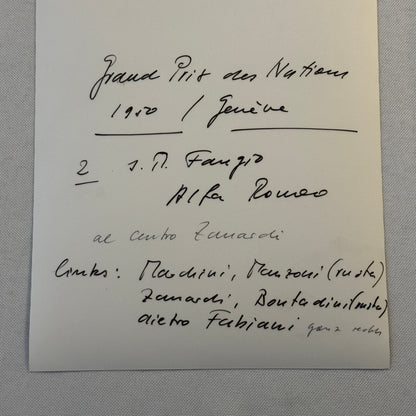 Grand Prix des Nations
1950 / Genève
2 J. M. Fangio
Alfa Romeo
al centro Zanardi
links: Mardini, Manzoni (rusta)
Zanardi, Bontadini (rusta)
dietro Fabiani ganz rechts